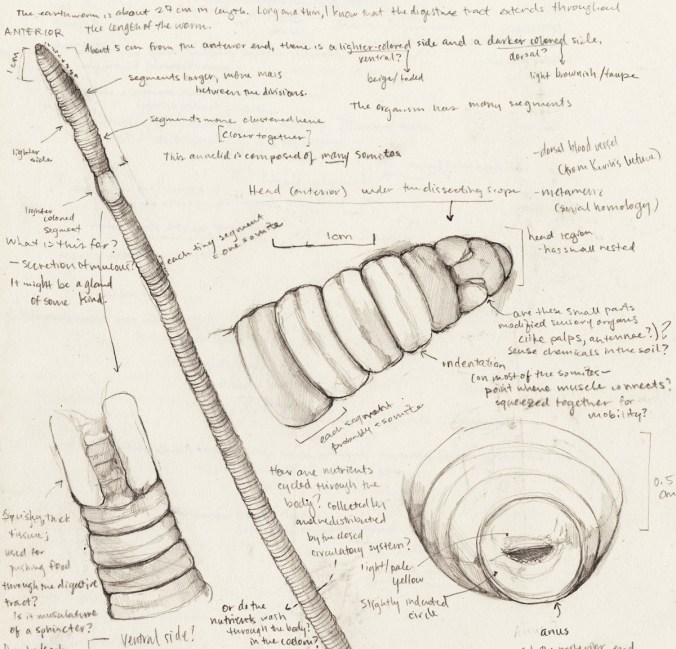 The earthworm is about 27 cm in length. Long and thin, I know that the digestive tract extends throughout
the length of the worm.
ANTERIOR
1cm
About 5 cm from the anterior end, there is a lighter-colored side and a darker colored side,
ventral?
dorsal?
beige/faded
light brownish/taupe
segments larger, more mass
between the divisions.
The organism has many segments
segments more clustered here
[closer together]
lighter
side
This annelid is composed of many somites
-dorsal blood vessel
(from Kevin's lecture)
-metameric
(serial homology)
Head (anterior) under the dissecting scope
lighter
colored
segment
What is this for?
- secretion of mucous?
It might be a gland
of some kind.
each tiny segment
= one somite
1cm
head region
- has small nested
are these small parts
modified sensory organs
(like palps, antennae?)?
sense chemicals in the soil?
indentation
(on most of the somites-
point where muscle connects?
squeezed together for
mobility?
each segment
probably = somite
How are nutrients
cycled through the
body? collected by
and redistributed
by the closed
circulatory system?
0.5
cm
light/pale
yellow
Slightly indented
circle
Squishy, thick
tissue;
used for
pushing food
through the digestive
tract?
Is it musculature
of a sphincter?
or do the
nutrients wash
through the body?
in the coelom?
ventral side?
anus